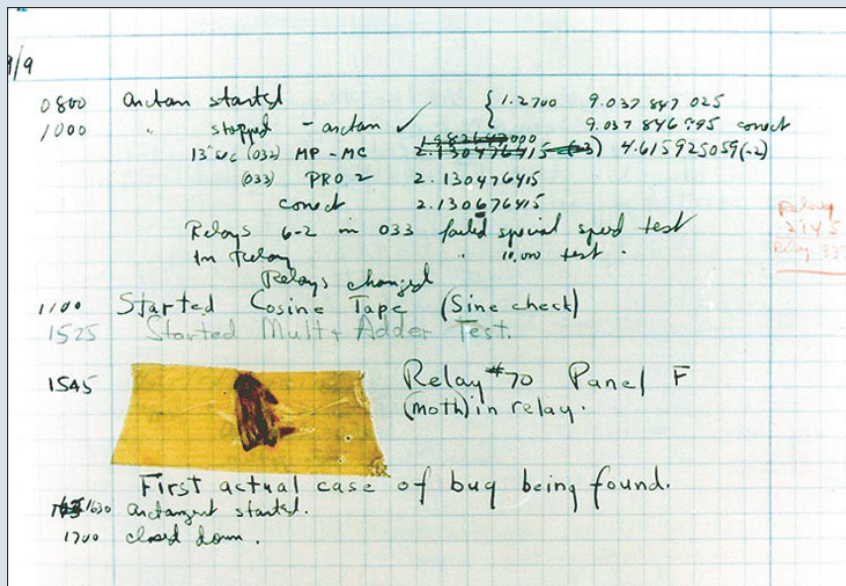 9/9
0800 arctan started { 1.2700 9.037 847 025
1000 " stopped - arctan ✓ 9.037 846 995 correct
13"uc (032) MP - MC 2.130476415 (-3) 4.615925059(-2)
(033) PRO 2 2.130476415
correct 2.130676415
Relays 6-2 in 033 failed special speed test
In relay " 10,000 test.
Relay
2145
Relay 337
Relays changed
1100 Started Cosine Tape (Sine check)
1525 Started Mult + Adder Test.
1545 Relay #70 Panel F
(moth) in relay.
First actual case of bug being found.
1630 arctangent started.
1700 closed down.